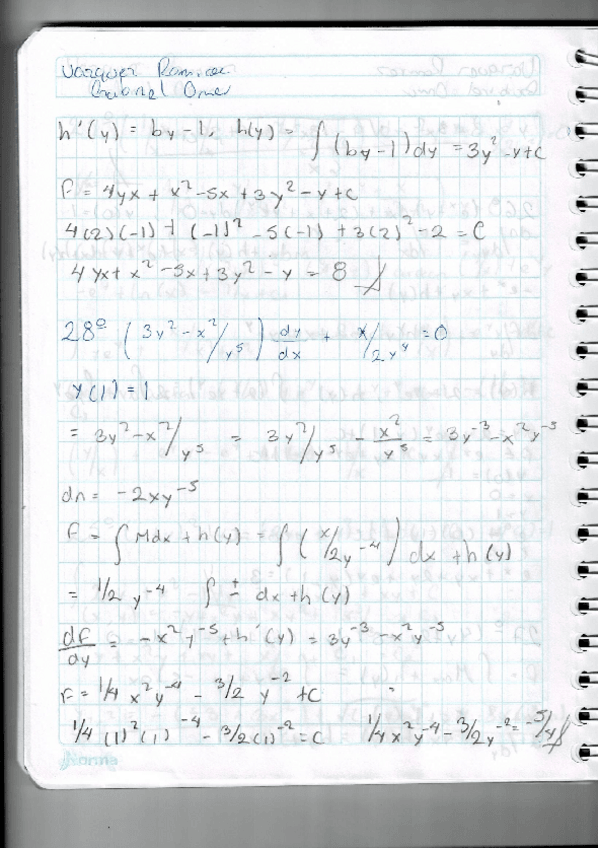 Vazquez Ramirez
Gabriel Omar
h'(y) = 6y-1, h(y) = ∫(6y-1)dy = 3y²-y+c
F = 4yx + x²-5x+3y²-y+c
4(2)(-1) + (-1)² -5(-1) + 3(2)² -2 = C
4yx + x² -5x + 3y² - y = 8
28º (3y²-x²/y⁵) dy/dx + x/2y⁴ = 0
y(1) = 1
= 3y²-x²/y⁵ = 3y²/y⁵ - x²/y⁵ = 3y⁻³-x²y⁻⁵
dn = -2xy⁻⁵
F = ∫Mdx + h(y) = ∫(x/2y⁻⁴) dx + h(y)
= 1/2 y⁻⁴ ∫ dx + h(y)
dF/dy = -x²y⁻⁵ + h'(y) = 3y⁻³ - x²y⁻⁵
F = 1/4 x²y⁻⁴ - 3/2 y⁻² + C
1/4 (1)²(1)⁻⁴ - 3/2(1)⁻² = C 1/4x²y⁻⁴-3/2y⁻² = -5/4